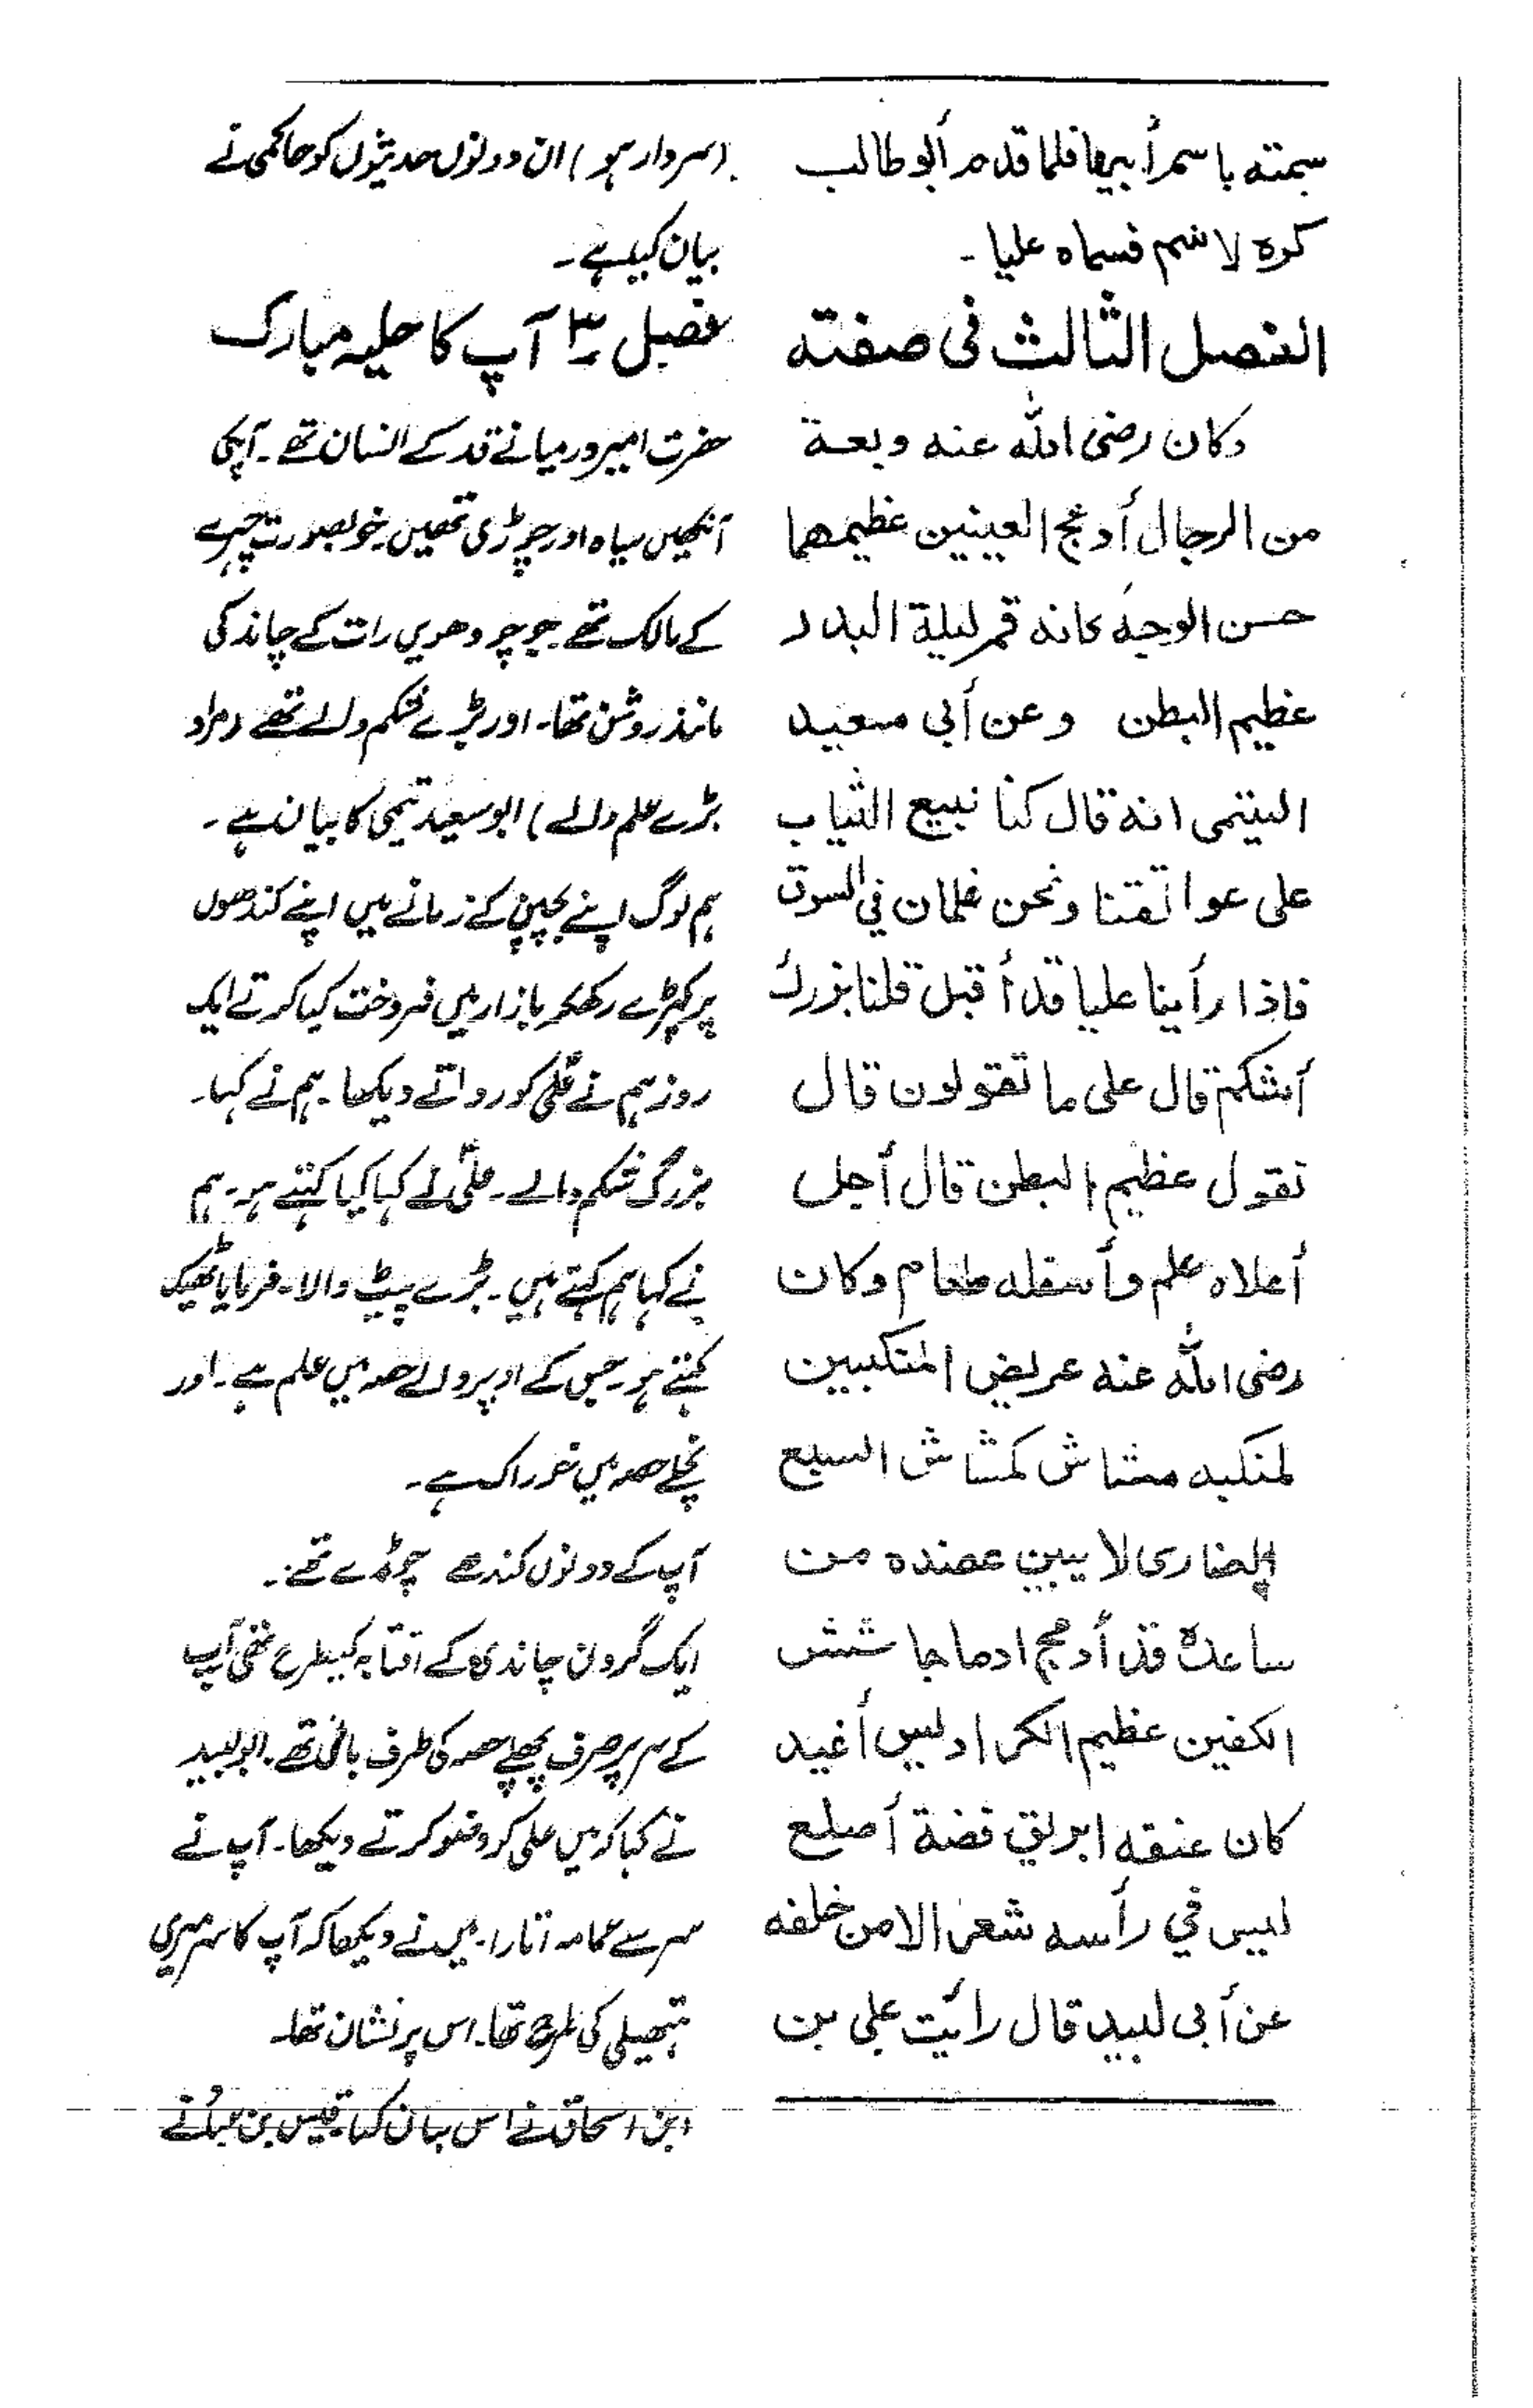 سمته باسم أبيها فلما قدم أبو طالب
كره لاسم فسماه عليا -
الفصل الثالث فى صفته
وكان رضى الله عنه وبعة
من الرجال أدعج العينين عظيمهما
حسن الوجه كانه قمر ليلة البدر
عظيم البطن وعن أبي سعيد
التيتمى انه قال كنا نبيع الثياب
على عواتقنا ونحن غلمان في السوق
فاذا رأينا عليا قد أقبل قلنا بزرك
أشكم قال على ما تقولون قال
نقول عظيم البطن قال أجل
أعلاه علم وأسفله طعام وكان
رضى الله عنه عريض المنكبين
لمنكبه مشاش كمشاش السبع
الضارى لا يبين عضده من
ساعده قد أدمج ادماجا شئن
الكفين عظيم الكراديس أغيد
كان عنقه ابريق فضة أصلع
ليس في رأسه شعر الا من خلفه
عن أبى لبيد قال رأيت على بن
(سردار ہو) ان دونوں حدیثوں کو حاکمی نے
بیان کیا ہے ۔
فصل ۳ آپ کا حلیہ مبارک
حضرت امیر درمیانے قد کے انسان تھے ۔ آپکی
آنکھیں سیاہ اور چوڑی تھیں خوبصورت چہرے
کے مالک تھے جو چودھویں رات کے چاند کی
مانند روشن تھا۔ اور بڑے شکم والے تھے (مراد
بڑے علم والے) ابو سعید تیمی کا بیان ہے ۔
ہم لوگ اپنے بچپن کے زمانے میں اپنے کندھوں
پر کپڑے رکھکر بازار میں فروخت کیا کرتے ایک
روز ہم نے علیؑ کو آتے دیکھا ۔ ہم نے کہا۔
بزرگ شکم والے ۔ علیؑ نے کہا کیا کہتے ہو ۔ ہم
نے کہا ہم کہتے ہیں ۔ بڑے پیٹ والا ۔ فرمایا ٹھیک
کہتے ہو ۔ جس کے اوپر والے حصہ میں علم ہے ۔ اور
نچلے حصہ میں خوراک ہے ۔
آپ کے دونوں کندھے چوڑے تھے ۔
ایک گردن چاندی کے افتابہ کیطرح تھی آپ
کے سر پر صرف پچھلے حصہ کی طرف بال تھے ۔ ابو لبید
نے کہا کہ میں علی کو وضو کرتے دیکھا ۔ آپ نے
سر سے عمامہ اتارا ۔ میں نے دیکھا کہ آپ کا سر میری
ہتھیلی کی طرح تھا۔ اس پر نشان تھا۔
ابن اسحاق نے اس بیان کیا قیس بن عباد نے